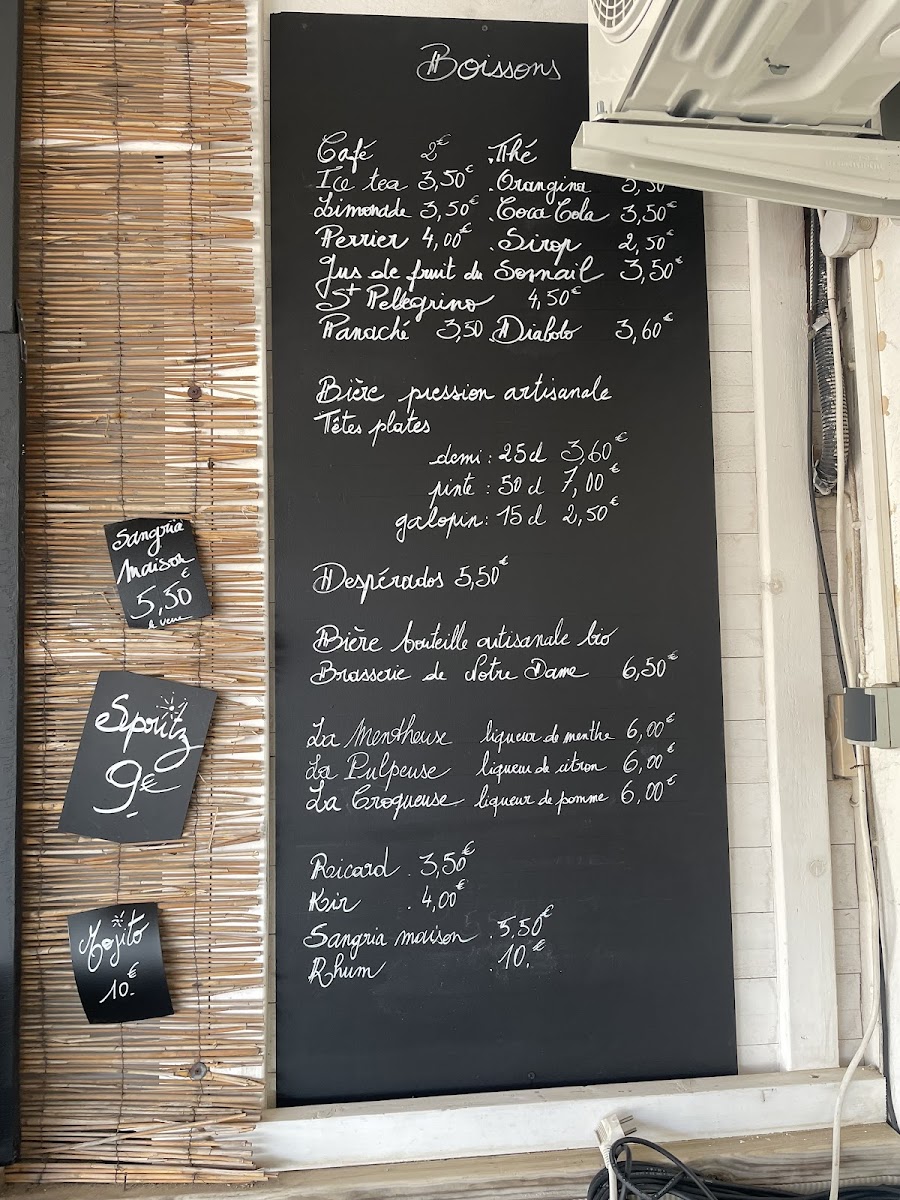 Boissons
Café 2€ . Thé
Ice tea 3,50€ . Orangina 3,50
Limonade 3,50€ . Coca Cola 3,50€
Perrier 4,00€ . Sirop 2,50€
Jus de fruit du Somail 3,50€
St Pelegrino 4,50€
Panaché 3,50 . Diabolo 3,60€
Bière pression artisanale
Têtes plates
demi : 25 cl 3,60€
pinte : 50 cl 7,00€
galopin : 15 cl 2,50€
Despérados 5,50€
Bière bouteille artisanale bio
Brasserie de Notre Dame 6,50€
La Mentheuse liqueur de menthe 6,00€
La Pulpeuse liqueur de citron 6,00€
La Croqueuse liqueur de pomme 6,00€
Ricard . 3,50€
Kir . 4,00€
Sangria maison . 5,50€
Rhum . 10.€
Sangria
maison
5,50€
le verre
Sepritz
9€
Mojito
10.€